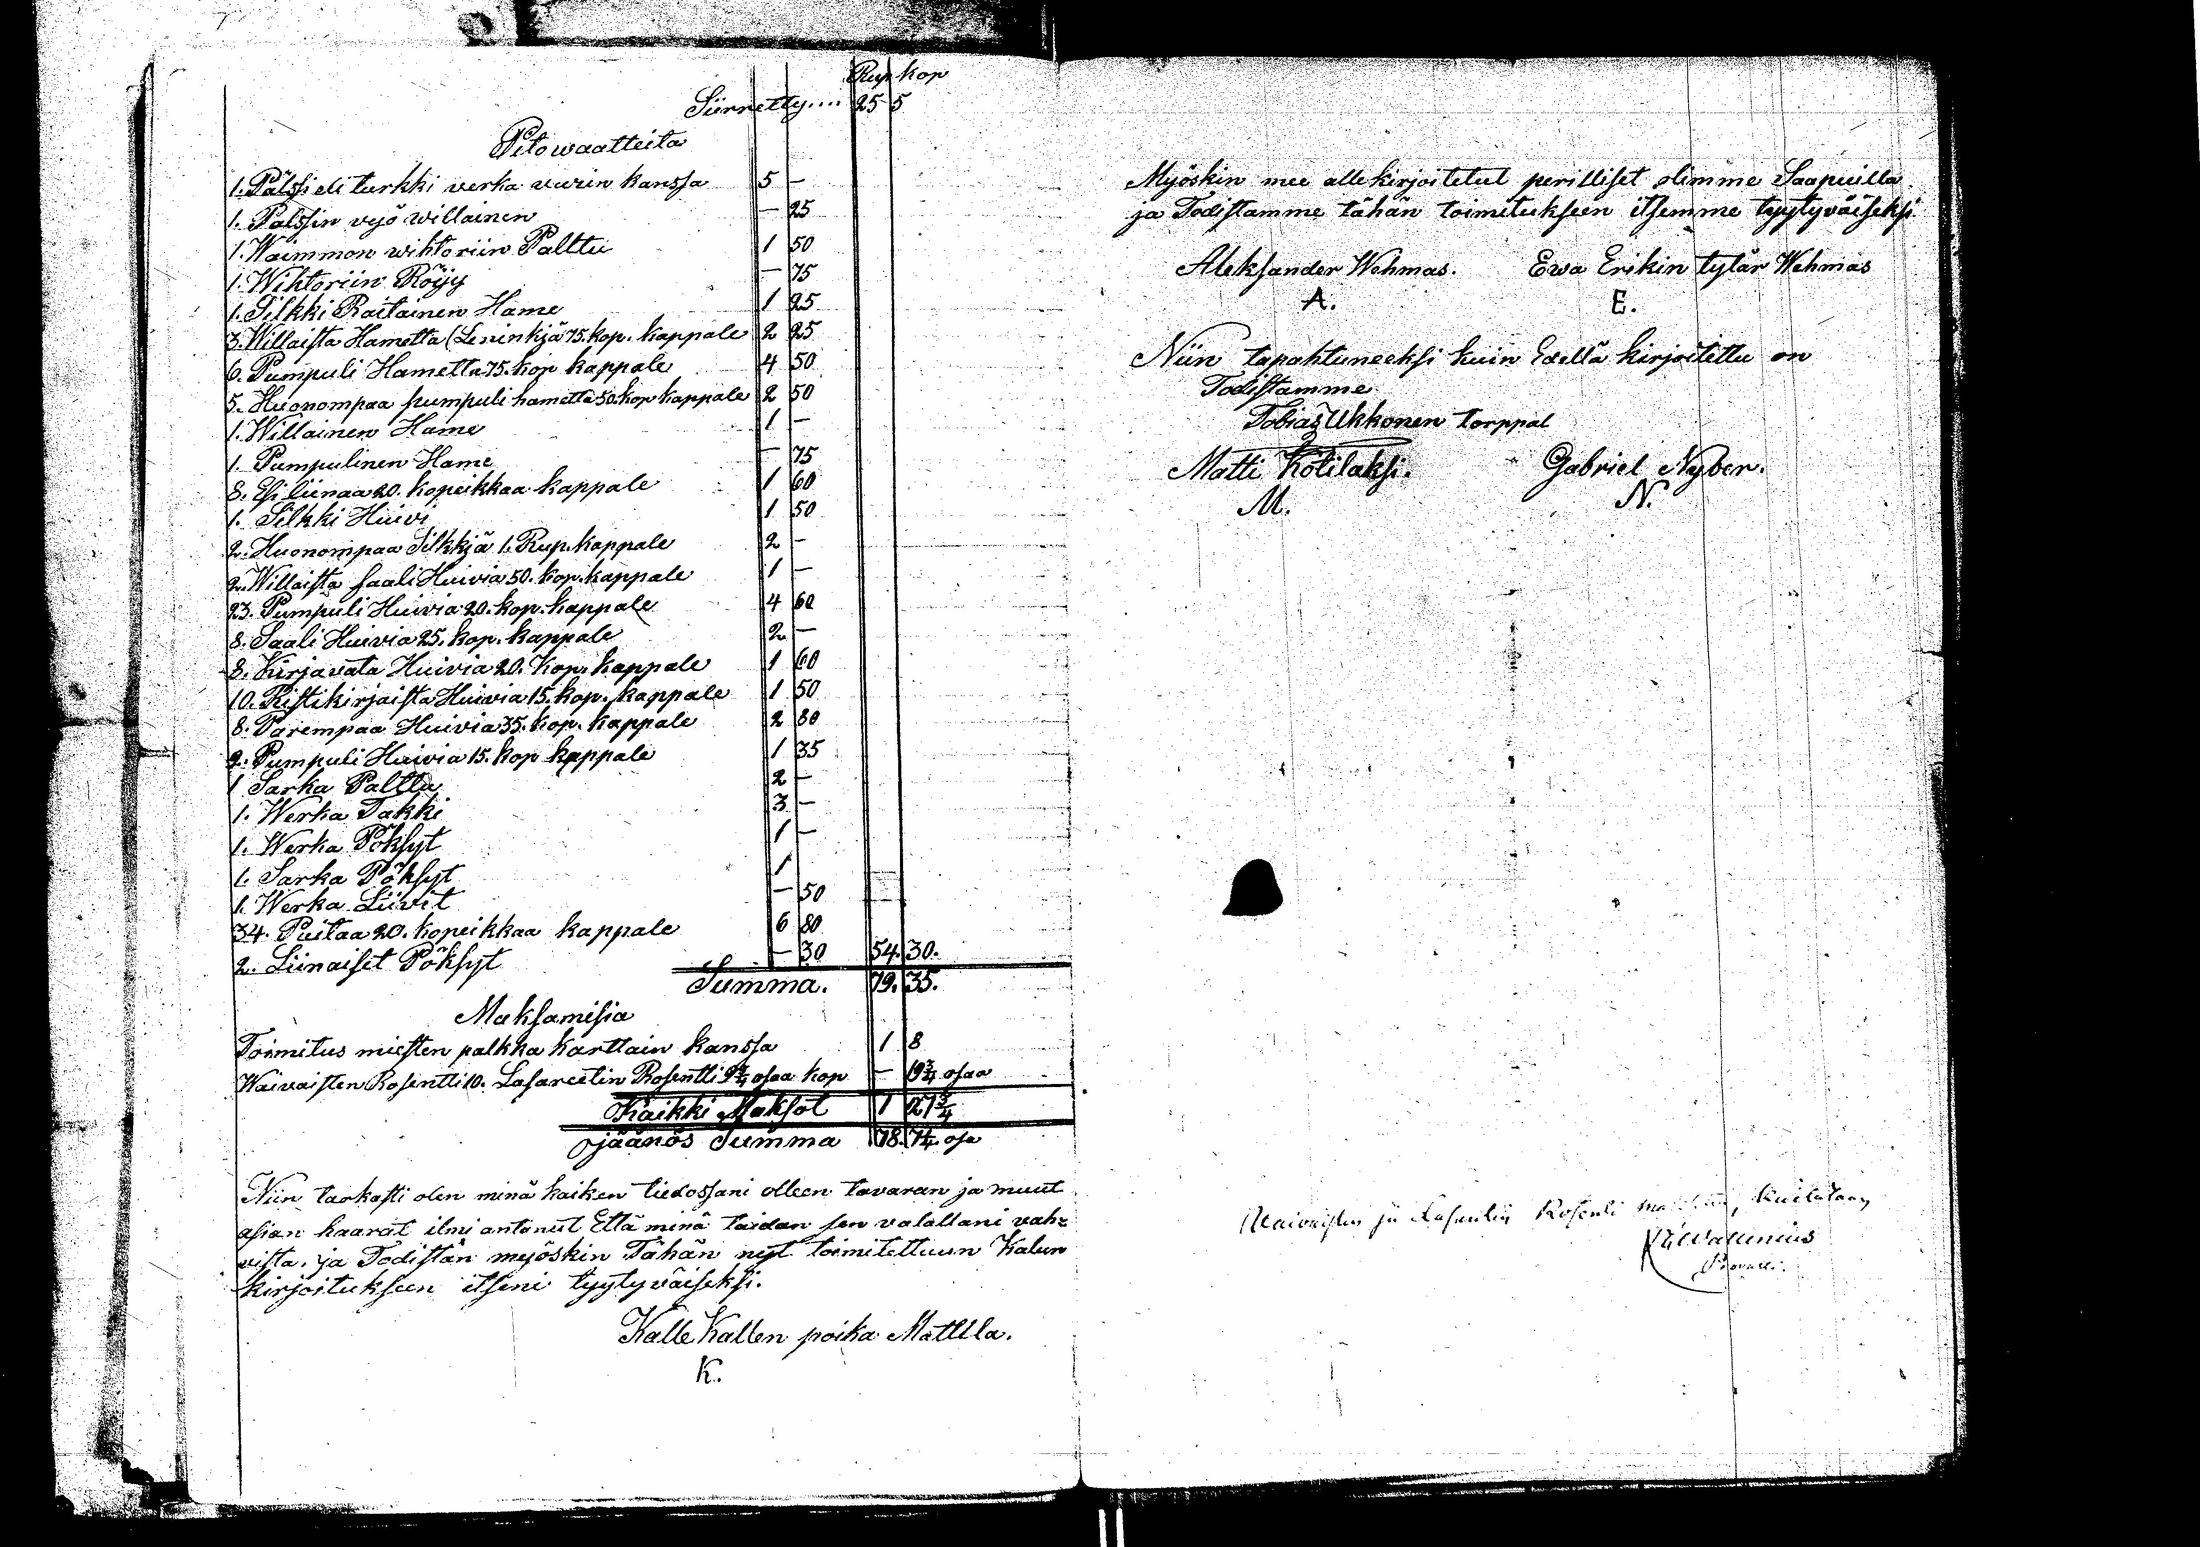 Rup kop
Siirretty.... 25 5
Pitowaatteita
1. Pälssi eli turkki verka vurin kanssa 5 –
1. Pälssin vyö willainen – 25
1. Waimmon wihtoriin Palttu 1 50
1. Wihtoriin Röijy – 75
1. Silkki Raitainen Hame 1 25
3. Willaista Hametta (Leninkjä 75. kop. kappale 2 25
6. Pumpuli Hametta 75. kop kappale 4 50
5. Huonompaa pumpuli hametta 50. kop kappale 2 50
1. Willainen Hame 1 –
1. Pumpulinen Hame – 75
8. Esi liinaa 20. kopeikkaa kappale 1 60
1. Silkki Huivi 1 50
2. Huonompaa Silkkjä 1. Rup. kappale 2 –
2. Willaista saali Huivia 50. kop. kappale 1 –
23. Pumpuli Huivia 20. kop. kappale 4 60
8. Saali Huivia 25. kop. kappale 2 –
8. Kirjavata Huivia 20. kop. kappale 1 60
10. Ristikirjaista Huivia 15. kop. kappale 1 50
8. Parempaa Huivia 35. kop. kappale 2 80
9. Pumpuli Huivia 15. kop kappale 1 35
1 Sarka Palttu 2 –
1. Werka Takki 3 –
1. Werka Pöksyt 1 –
1. Sarka Pöksyt 1
1. Werka Liivit – 50
34. Paitaa 20. kopeikkaa kappale 6 80
2. Liinaiset Pöksyt – 30 54. 30.
Summa. 79. 35.
Maksamisia
Toimitus miesten palkka karttain kanssa 1 8
Waivaisten Rosentti 10. Lasareetin Rosentti 9 3/4 osaa kop – 19 3/4 osaa
Kaikki Maksot 1 27 3/4
Jäänös Summa 78. 7 1/4. osa
Niin tarkasti olen minä kaiken tiedossani olleen tavaran ja muut
asian haarat ilmi antanut Että minä taidan sen valallani vah=
vista. ja Todistan myöskin Tähän nyt toimitettuun Kalun
kirjoitukseen itseni tyytyväiseksi.
Kalle Kallen poika Mattila.
K.
Myöskin mee alle kirjoitetut perilliset olimme Saapuilla
ja Todistamme tähän toimitukseen itsemme tyytyväiseksi
Aleksander Wehmas. Ewa Erikin tytär Wehmas
A. E.
Niin tapahtuneeksi kuin Edellä kirjoitettu on
Todistamme
Tobias Ukkonen torppal
Matti Kotilaksi. Gabriel Nyber.
M. N.
Waivaisten ja Lasaretin Rosenti kuitataan
Wallenius